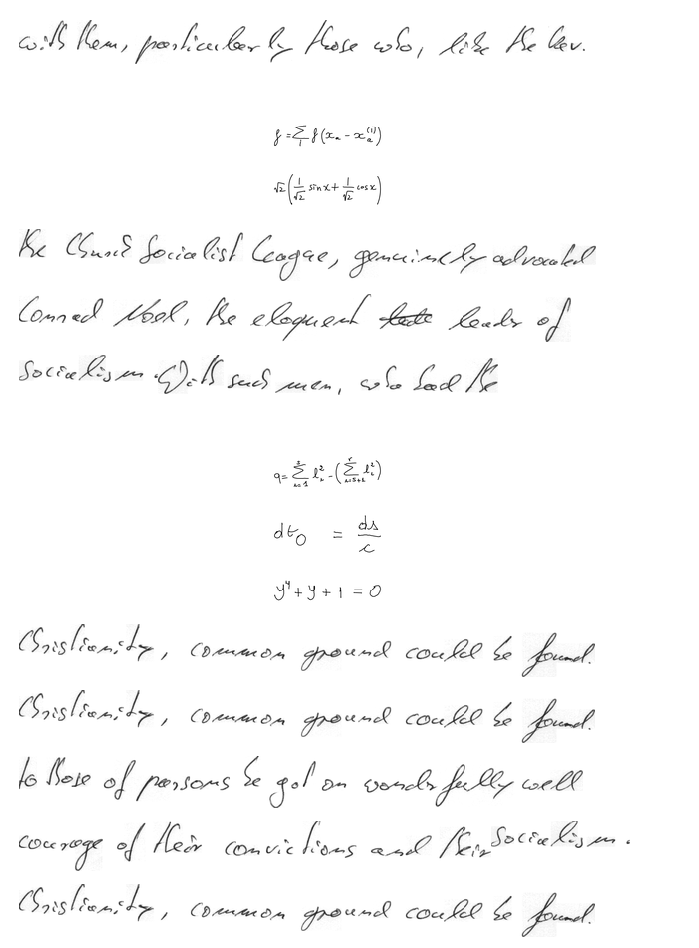 with them, particularly those who, like the Rev.
f = \sum_{i} f(x_a - x_a^{(i)})
\sqrt{2} \left( \frac{1}{\sqrt{2}} \sin x + \frac{1}{\sqrt{2}} \cos x \right)
the Church Socialist League, genuinely advocated
Conrad Noel, the eloquent leader of
Socialism. With such men, who had the
q = \sum_{i=1}^{s} l_i^2 - ( \sum_{i=s+1}^{r} l_i^2 )
dt_0 = \frac{ds}{c}
y^4 + y + 1 = 0
Christianity, common ground could be found.
Christianity, common ground could be found.
to those of parsons he got on wonderfully well
courage of their convictions and their Socialism.
Christianity, common ground could be found.